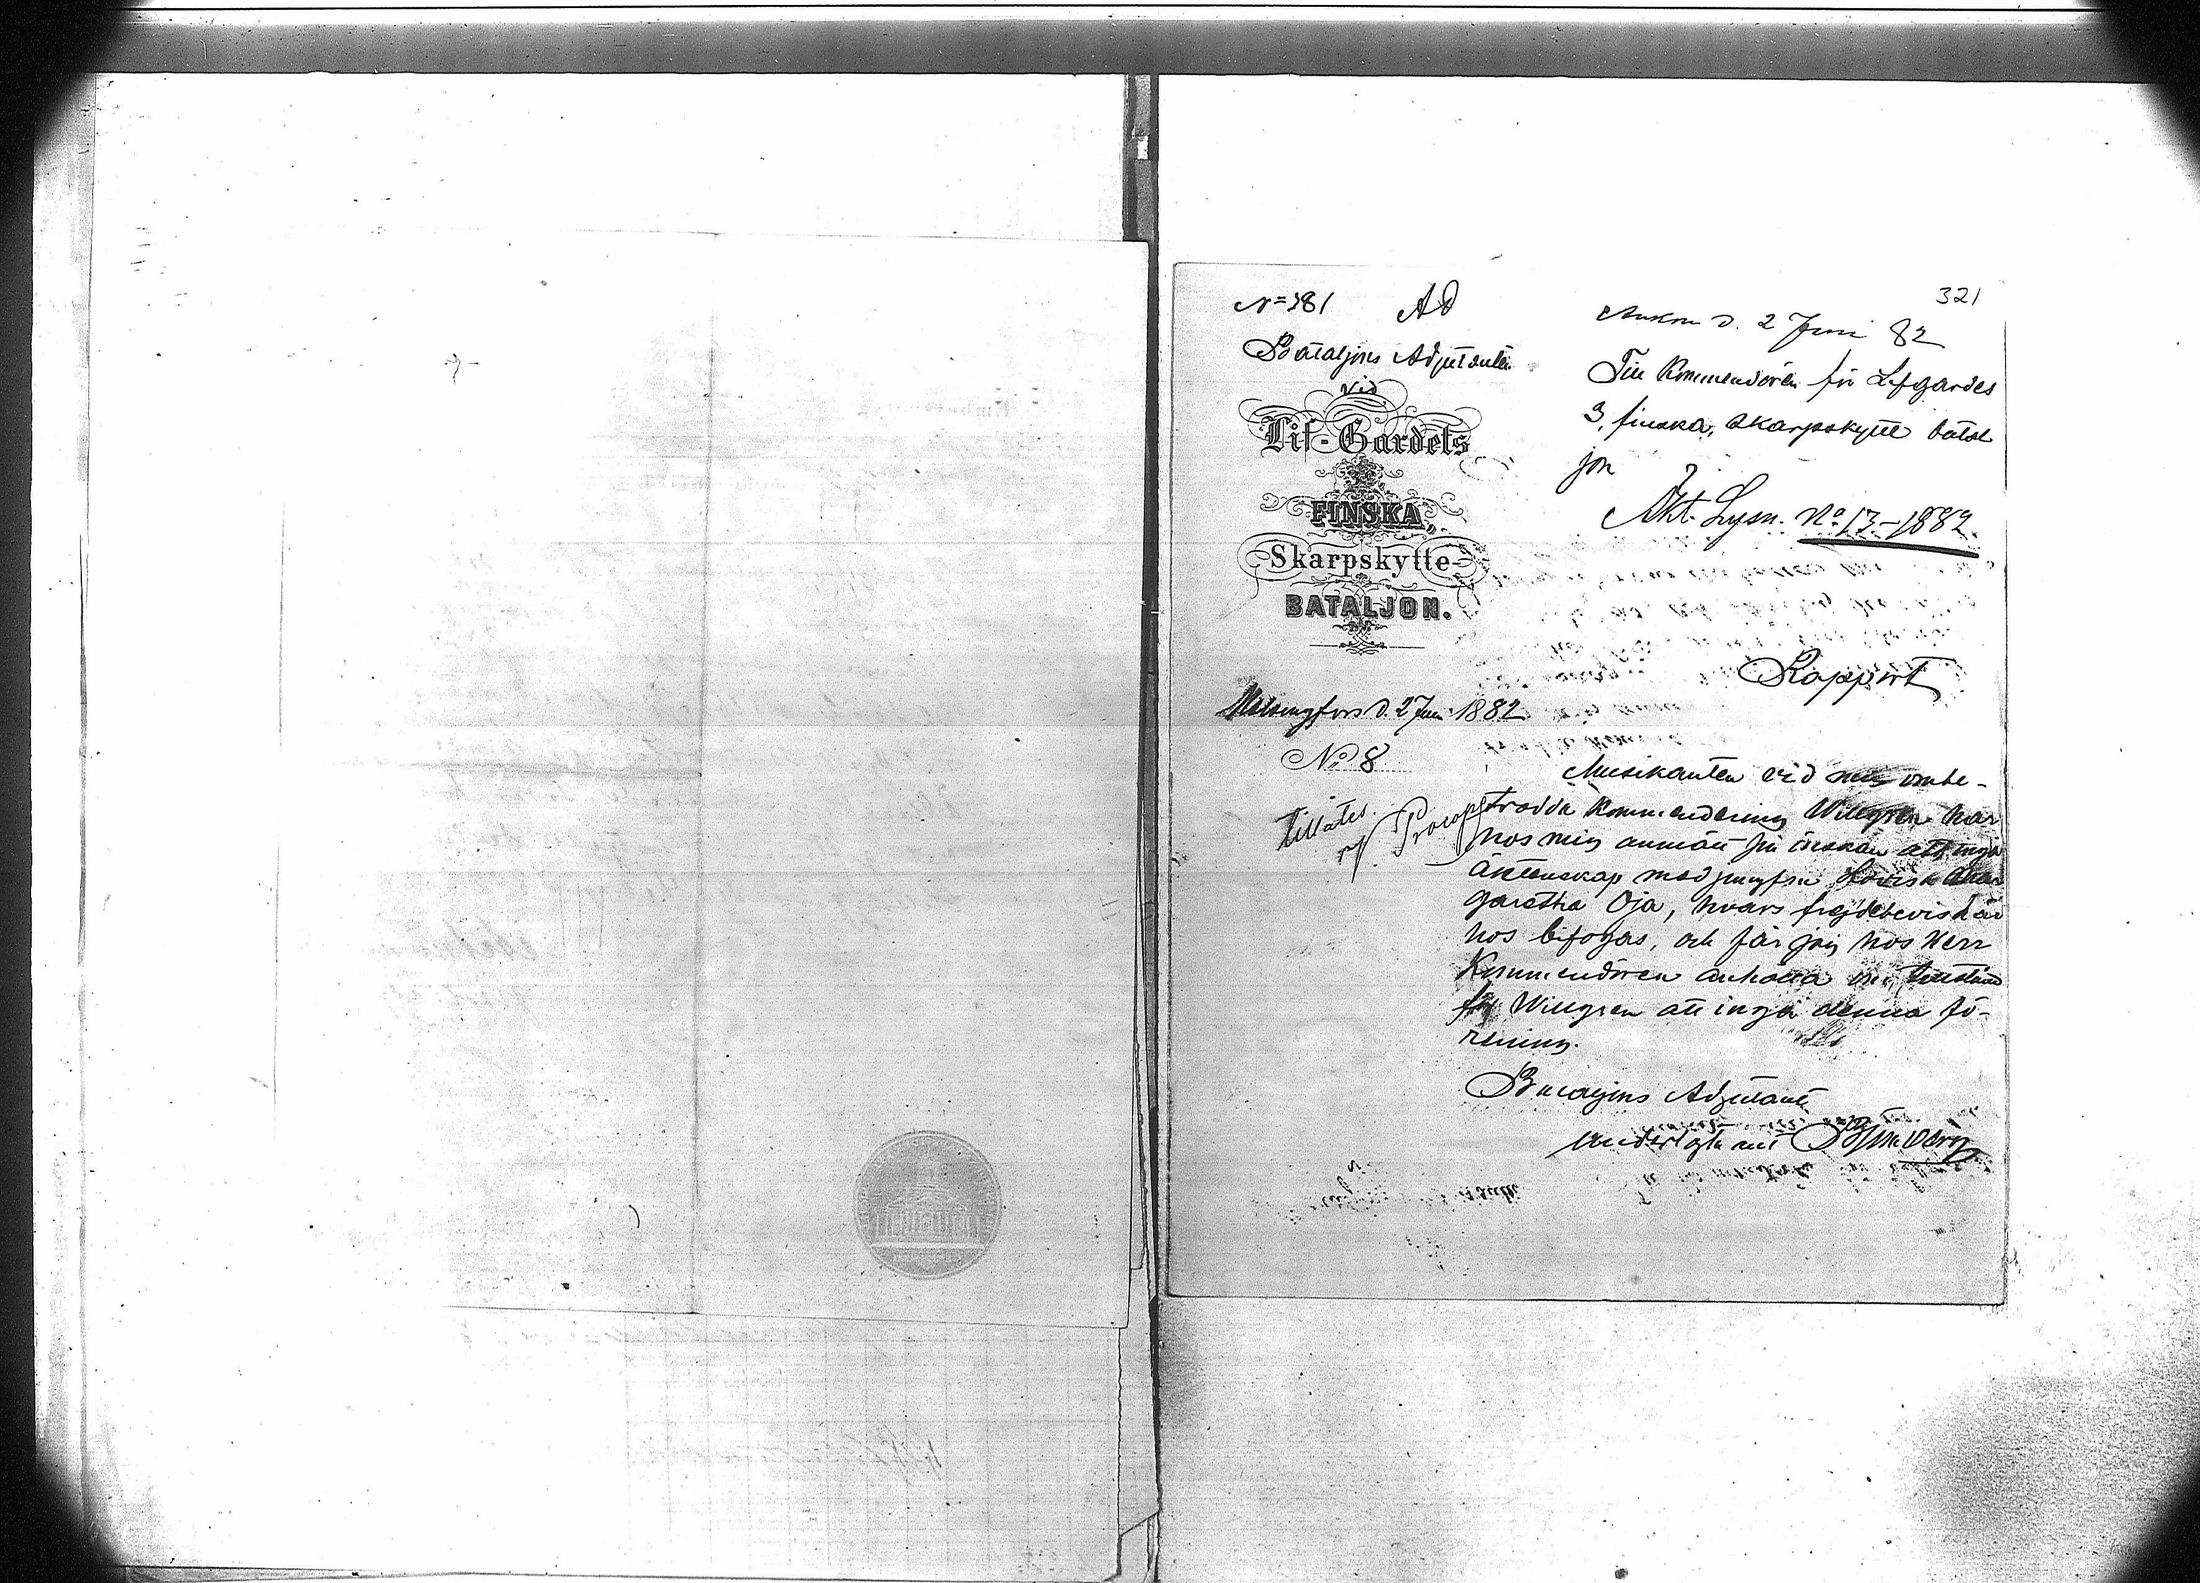 321
N=381 Ad
Bataljons Adjutanten
vid
Lif-Gardets
FINSKA,
Skarpskytte-
BATALJON.
Helsingfors d. 2 Juni 1882
No 8
tillåtes.
Ankom d. 2 Juni 82
Till Kommendören för Lifgardes
3, finska, skarpskytte batal
jon
Akt. Lysn. No 17-1882.
Rapport
Musikanten vid mig ombe-
trodda Kommendering Willgren har
hos mig anmält sin önskan att ingå
äktenskap med jungfru Lovisa Mar
garetha Oja, hvars frejdebevis här
hos bifogas, och får jag hos Herr
Kommendören anhålla om tillstånd
för Willgren att ingå denna fö-
rening.
Bataljons Adjutant
underlöjtnant